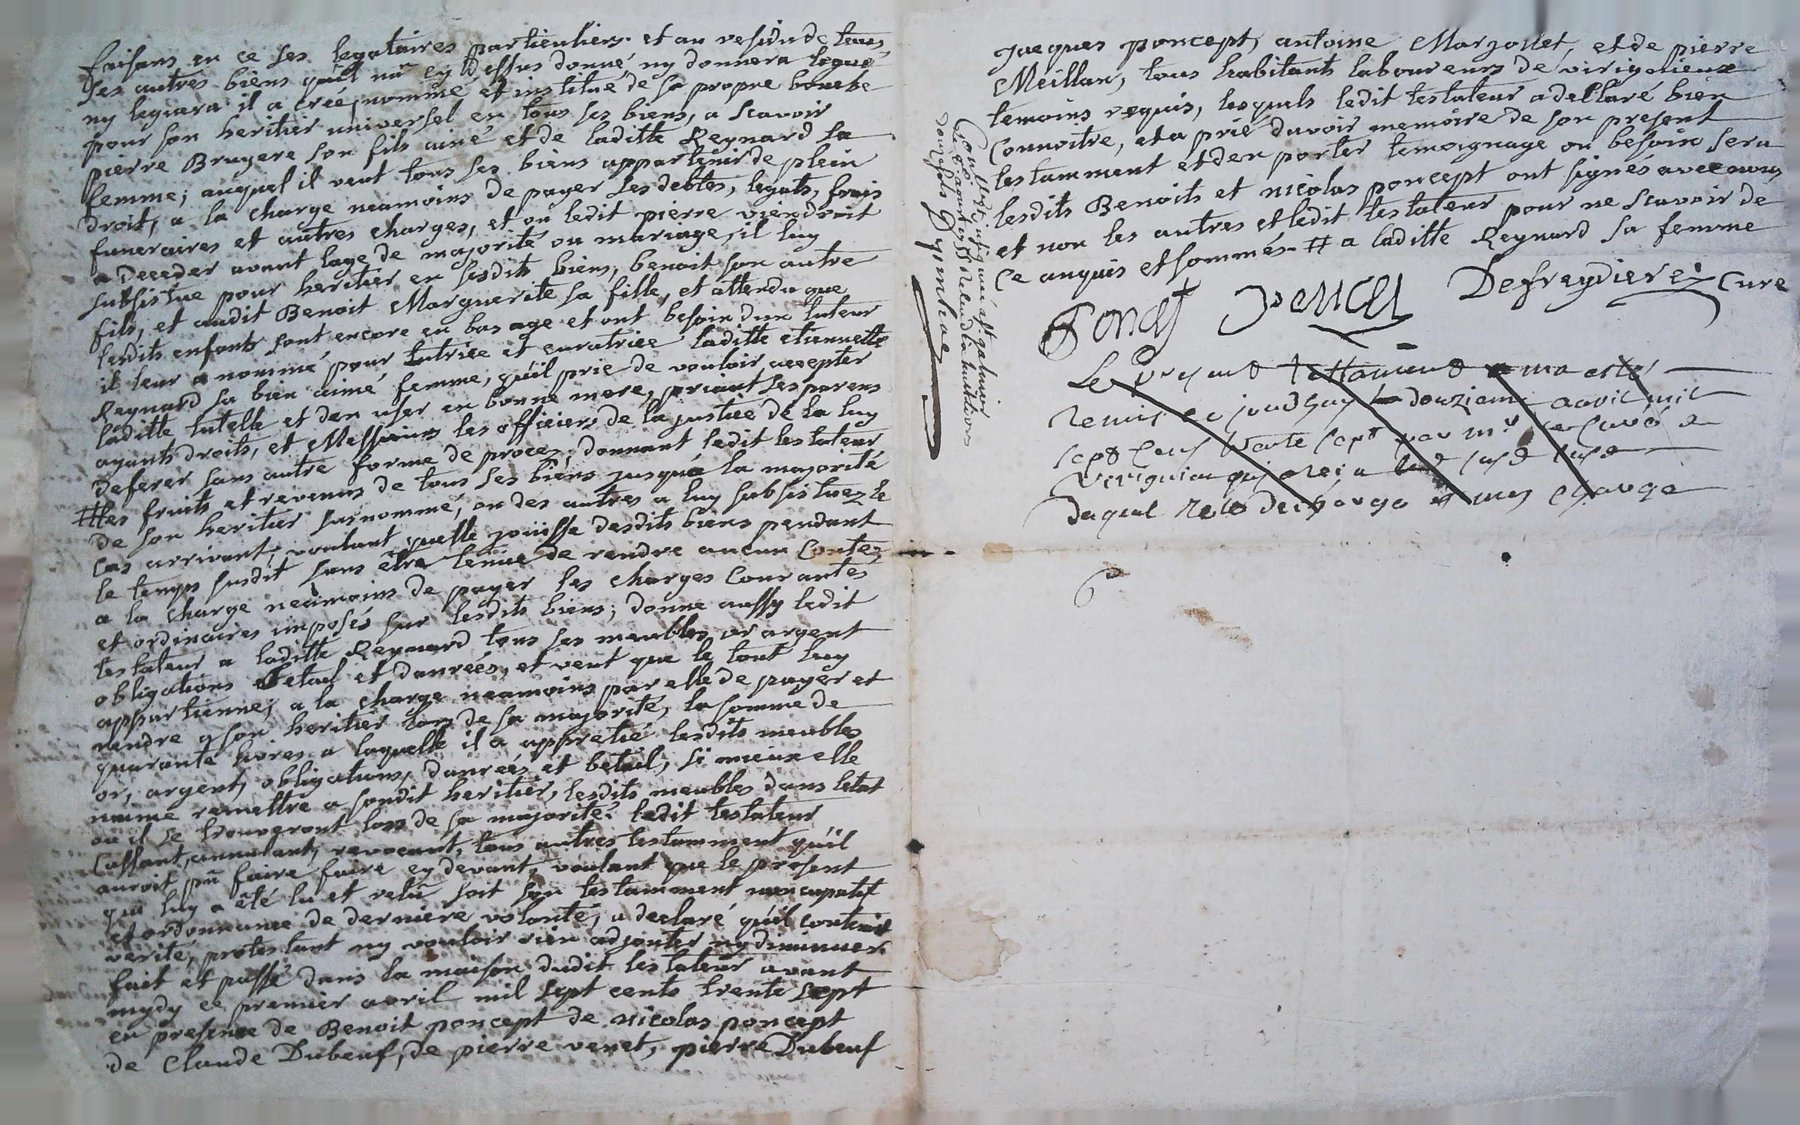 faisans en ce ses legataires particuliers. et au residu de tous
ses autres biens qu'il n'a cy dessus donné ny donnera legué
ny leguera il a créé, nommé et institué de sa propre bouche
pour son heritier universel en tous ses biens, a scavoir
pierre Bruyere son fils ainé et de laditte Reynard sa
femme; auquel il veut tous ses biens appartenir de plein
droit, a la charge neamoins de payer ses debtes, legats, frais
funeraires et autres charges, et ou ledit pierre viendroit
a deceder avant lage de majorité ou mariage, il luy
substitue pour heritier en sesdits biens, benoit son autre
fils, et audit Benoit Marguerite sa fille, et attendu que
lesdits enfants sont encore en bas age et ont besoin dun tuteur
il leur a nommé pour tutrice et curatrice laditte etiennette
Reynard sa bien aimé femme, qu'il prie de vouloir accepter
laditte tutelle et den user en bonne mere, priant ses parens
ayants droits, et Messieurs les officiers de la justice de la luy
deferer sans autre forme de proces. donnant ledit testateur
# les fruits et revenus de tous ses biens jusqua la majorité
de son heritier susnommé, ou des autres a luy substituez le
cas arrivant, voulant quelle joüisse desdits biens pendant
le temps susdit sans être tenue de rendre aucun contes
a la charge neamoins de payer les charges courantes
et ordinaires imposés sur lesdits biens; donne aussy ledit
testateur a laditte Reynard tous ses meubles or argent
obligations betail et danreés, et veut que le tout luy
appartienne; a la charge neamoins par elle de payer et
rendre a son heritier lors de sa majorité, la somme de
quarante livres a laquelle il a appretié lesdits meubles
or, argent, obligations, danreés et betail, si mieux elle
naime remettre a sondit heritier, lesdits meubles dans letat
ou il se trouveront lors de sa majorité. ledit testateur
cassant, annulant, revocant, tous autres testamment qu'il
auroit pû faire faire cy devant, voulant que le present
qui luy a été lu et relû soit son testamment nuncupatif
et ordonnance de derniere volonté, a declaré qu'il contient
verité, protestant ny vouloir rien adjouter ny diminuer
fait et passé dans la maison dudit testateur avant
mydy ce premier avril mil sept cents trente sept
en presence de Benoit poncept de nicolas poncept
de Claude Dubeuf, de pierre venet, pierre Dubeuf
Jacques poncept, antoine Marjollet, et de pierre
Meillan, tous habitants laboureurs de virignieux
temoins requis, lesquels ledit testateur a dellaré bien
connoitre, et a prié davoir memoire de son present
testamment et den porter temoignage ou besoin sera
lesdits Benoits et nicolas poncept ont signés avec nous
et non les autres et ledit testateur pour ne scavoir de
ce enquis et sommés. # a laditte Reynard sa femme
Poncet Poncet Defreydiere Curé
Le present testament a ma esté
remis ce jourdhuy douzieme avril mil
sept cens trente sept par mr le curé de